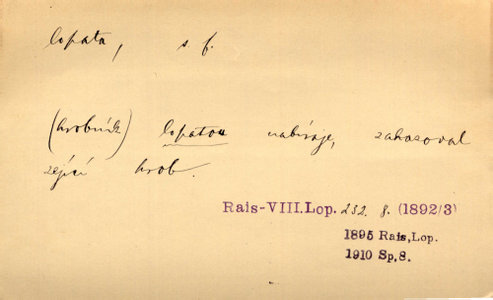 lopata, s f.
(hrobník) lopatou nabíraje, zahazoval
zející hrob.
Rais-VIII.Lop. 232. 8. (1892/3)
1895 Rais,Lop.
1910 Sp,8.